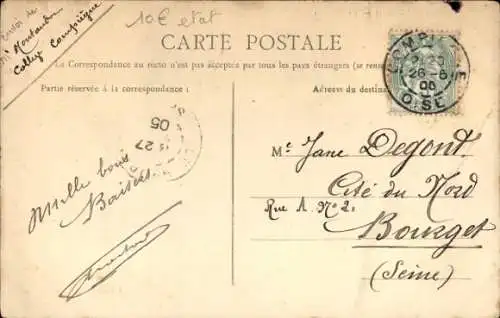 Envoi de
Mr Montaudon
Collège Compiègne
10€ etat
CARTE POSTALE
La Correspondance au recto n'est pas acceptée par tous les pays étrangers (se rense
Partie réservée à la correspondance :
Adresse du destina
COMPIÈGNE
26-6
05
OISE
05
27
Mille bons
Baisers
Me Jane Degont
Cité du Nord
Rue A No 2.
Bourget
(Seine)